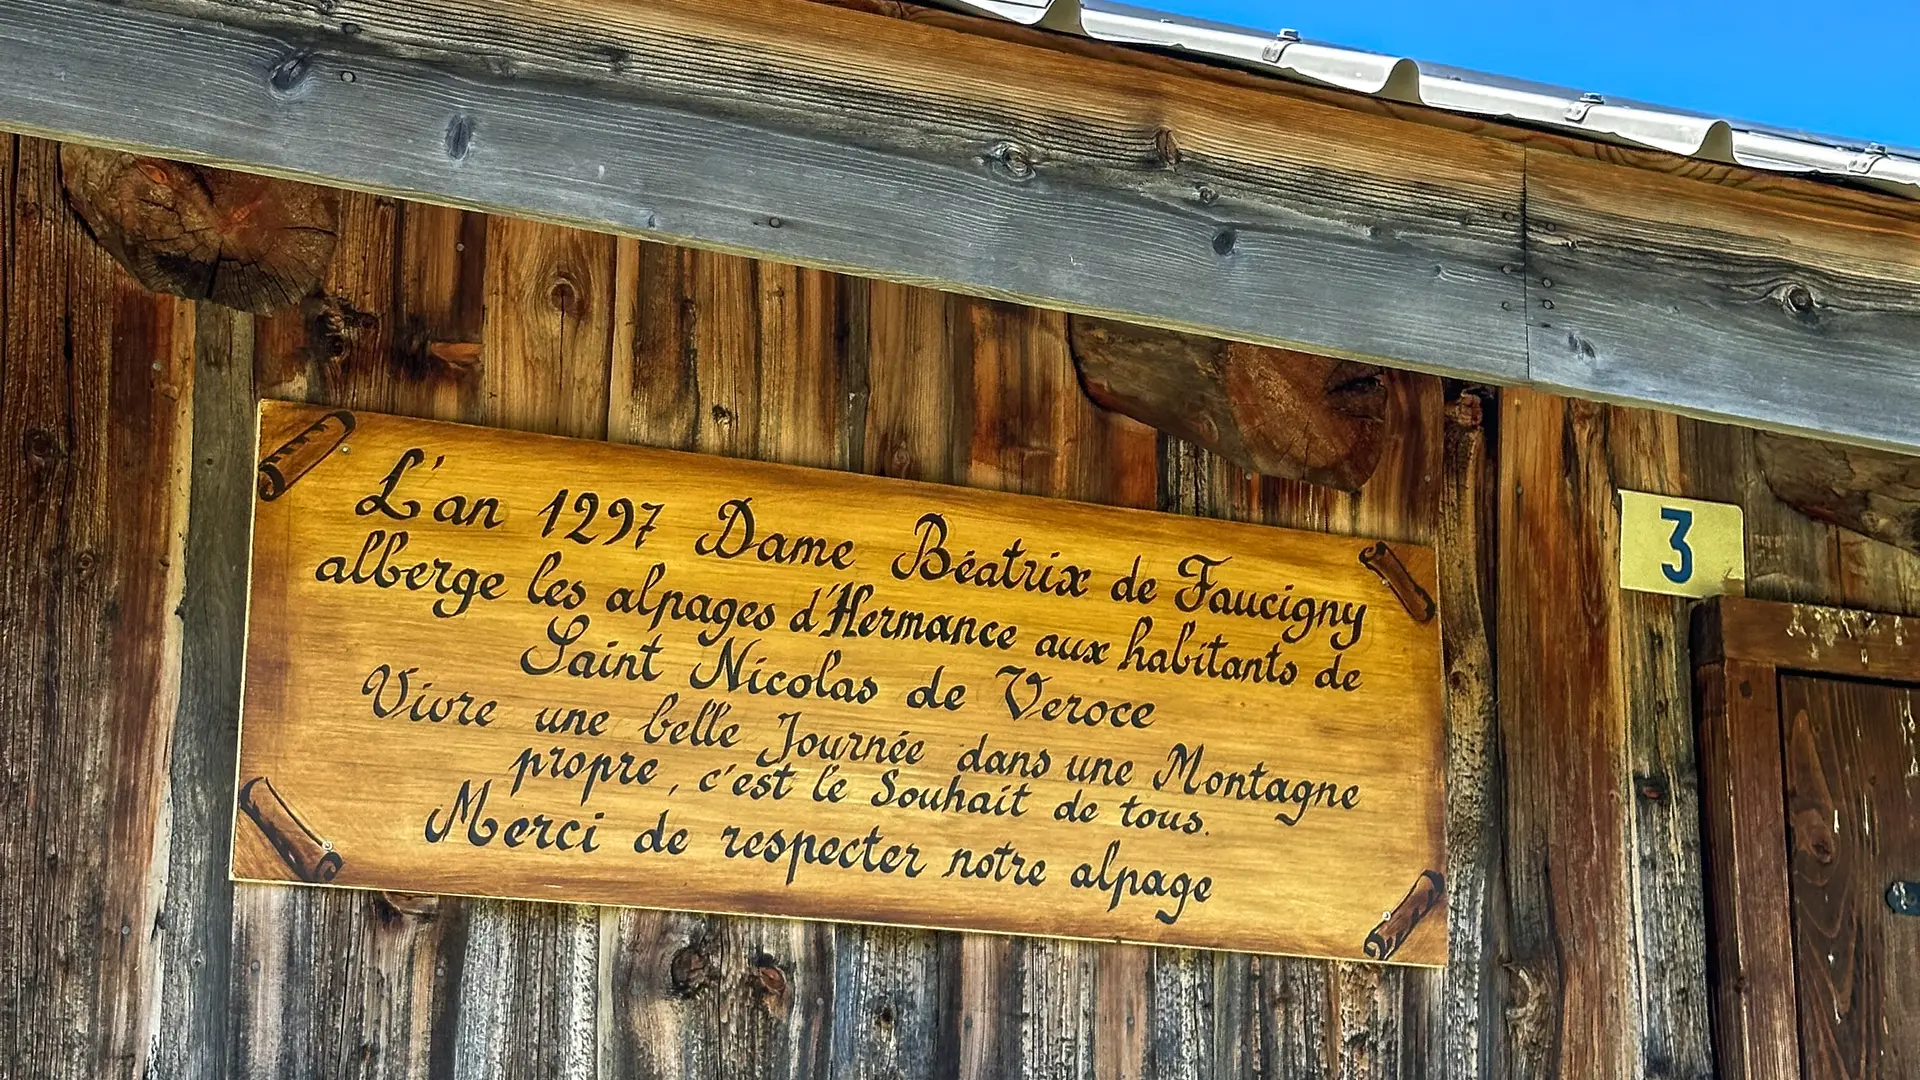 L'an 1297 Dame Béatrix de Faucigny
alberge les alpages d'Hermance aux habitants de
Saint Nicolas de Veroce
Vivre une belle Journée dans une Montagne
propre, c'est le Souhait de tous.
Merci de respecter notre alpage
3